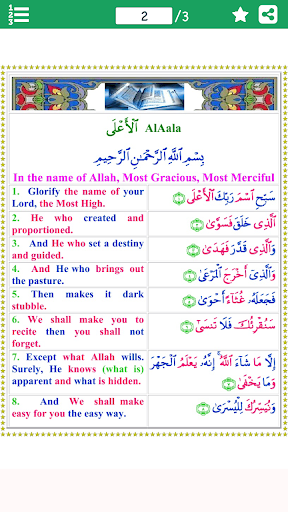 1
2
3
2 /3
ٱلْأَعْلَى AlAala
بِسْمِ ٱللَّهِ ٱلرَّحْمَٰنِ ٱلرَّحِيمِ
In the name of Allah, Most Gracious, Most Merciful
1. Glorify the name of your
Lord, the Most High.
سَبِّحِ ٱسْمَ رَبِّكَ ٱلْأَعْلَى
2. He who created and
proportioned.
ٱلَّذِى خَلَقَ فَسَوَّىٰ
3. And He who set a destiny
and guided.
وَٱلَّذِى قَدَّرَ فَهَدَىٰ
4. And He who brings out
the pasture.
وَٱلَّذِىٓ أَخْرَجَ ٱلْمَرْعَىٰ
5. Then makes it dark
stubble.
فَجَعَلَهُۥ غُثَآءً أَحْوَىٰ
6. We shall make you to
recite then you shall not
forget.
سَنُقْرِئُكَ فَلَا تَنسَىٰٓ
7. Except what Allah wills.
Surely, He knows (what is)
apparent and what is hidden.
إِلَّا مَا شَآءَ ٱللَّهُ ۚ إِنَّهُۥ يَعْلَمُ ٱلْجَهْرَ
وَمَا يَخْفَىٰ
8. And We shall make
easy for you the easy way.
وَنُيَسِّرُكَ لِلْيُسْرَىٰ